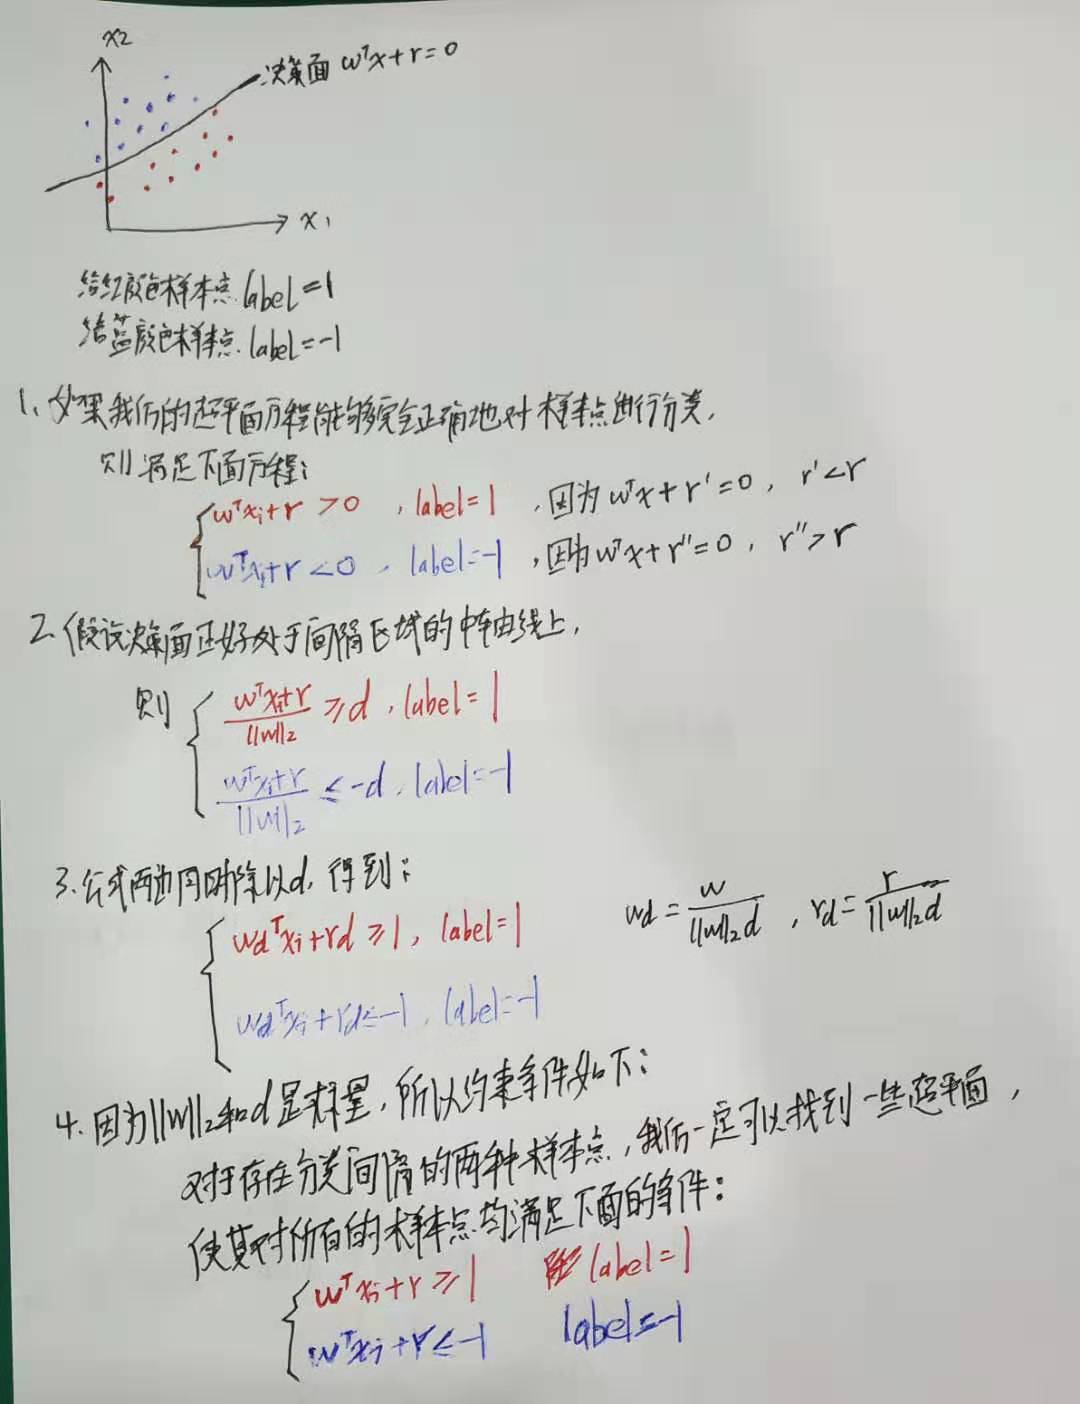 x₂
决策面 wᵀx+r=0
x₁
给红颜色样本点 label=1
给蓝颜色样本点. label=-1
1、如果我们的超平面方程能够完全正确地对样本点进行分类,
则满足下面方程:
wᵀxᵢ+r >0 , label=1 , 因为wᵀx+r'=0, r'<r
wᵀxᵢ+r <0 , label=-1 , 因为wᵀx+r''=0, r''>r
2. 假设决策面正好处于间隔区域的中轴线上,
则 (wᵀxᵢ+r)/||w||₂ ≥d , label=1
(wᵀxᵢ+r)/||w||₂ ≤-d , label=-1
3. 公式两边同时除以d, 得到:
wdᵀxᵢ+rd≥1, label=1 wd=w/(||w||₂d) , rd=r/(||w||₂d)
wdᵀxᵢ+rd≤-1, label=-1
4. 因为||w||₂和d是标量, 所以约束条件如下:
对于存在分类间隔的两种样本点, 我们一定可以找到一些超平面,
使其对所有的样本点均满足下面的条件:
wᵀxᵢ+r≥1 label=1
wᵀxᵢ+r≤-1 label=-1